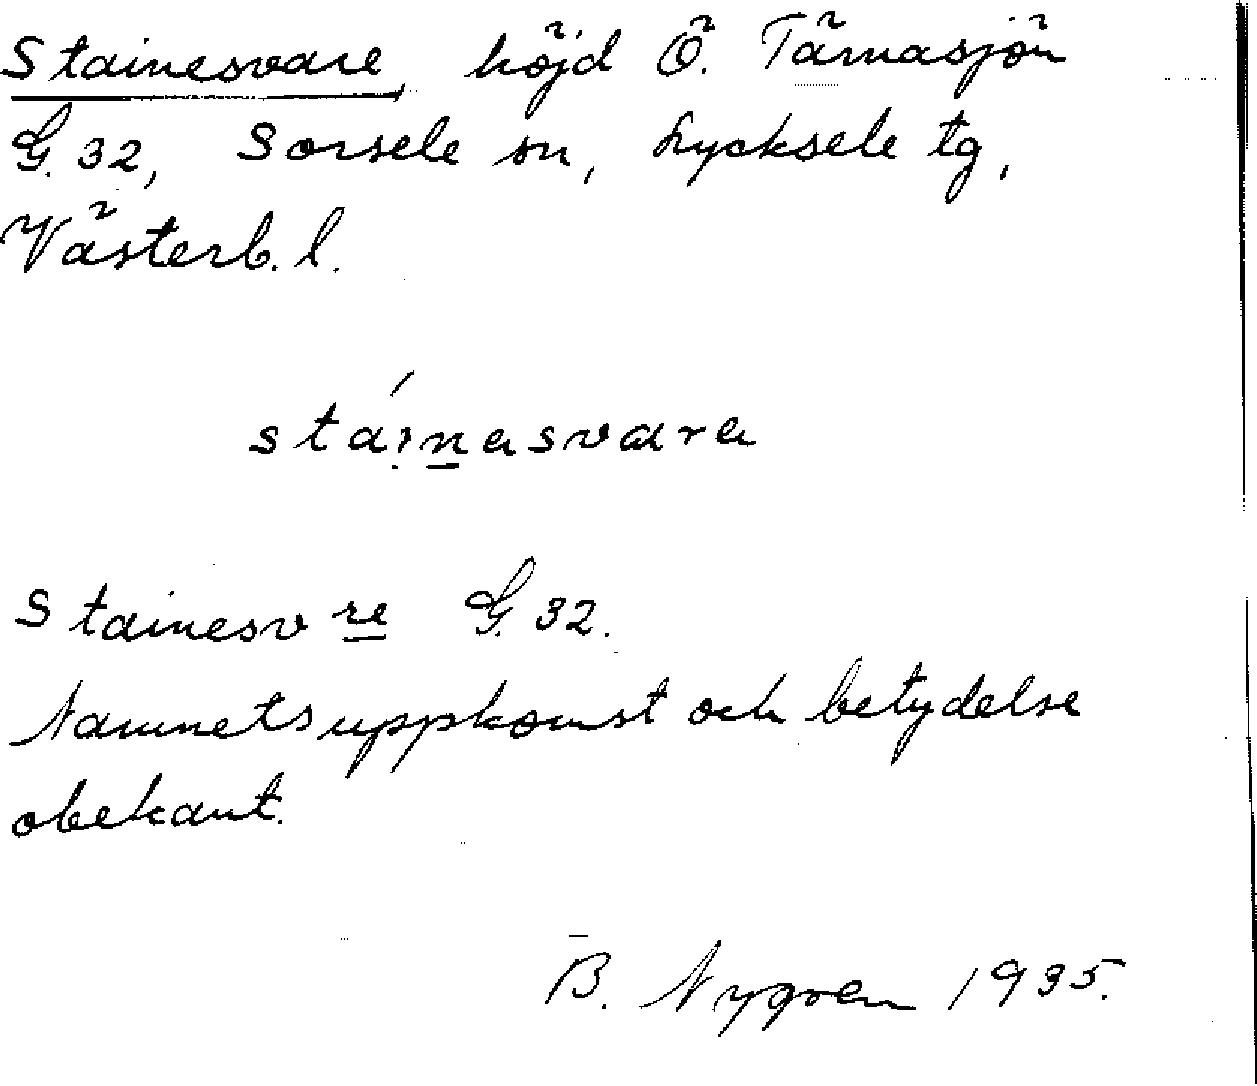 Stainesvare, höjd Ö. Tärnasjön
G. 32, Sorsele sn, Lycksele tg,
Västerb. l.
stáinasvara
Stainesvre G. 32.
Namnets uppkomst och betydelse
obekant.
B. Nygren 1935.